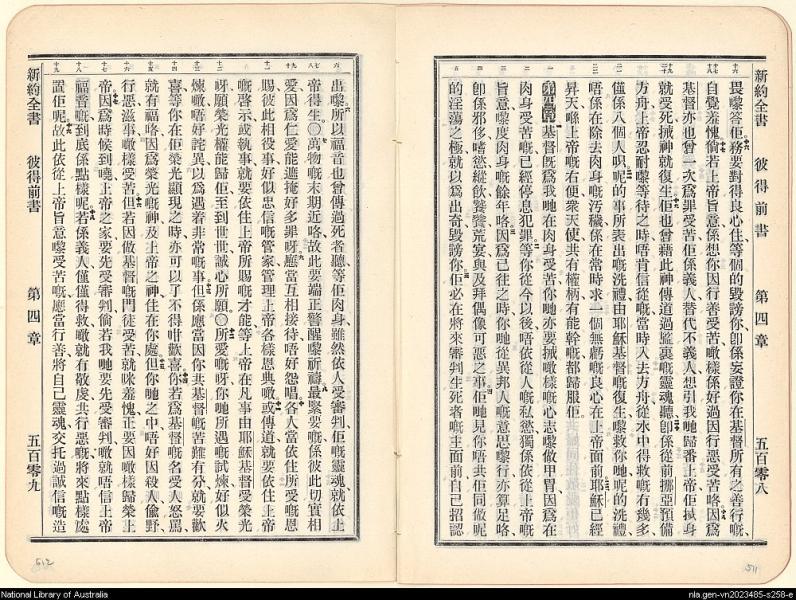 新約全書 彼得前書 第四章 五百零八
畏嚟答佢務要對得良心住等個的毀謗你卽係妄證你在基督所有之善行嘅、
自覺羞愧倘若上帝旨意係想你因行善受苦噉樣係好過因行惡受苦咯因爲
基督亦也曾一次爲罪受苦佢係義人替代不義人想引我哋歸番上帝佢身
就受死神就復生佢也曾藉此神傳道過監裏嘅靈魂聽卽係從前挪亞預備
方舟上帝忍耐嚟等待之時唔肯信從嘅當時入去方舟從水中得救嘅有幾多
僅係八個人呢的事所表出嘅洗禮由耶穌基督嘅復生嚟救你哋呢的洗禮
唔係在除去肉身嘅汚穢係在常時求一個無虧嘅良心在上帝面前耶穌已經
昇天喺上帝嘅右便衆天使共有權柄有能幹嘅都歸服佢
第四章 基督旣爲我哋在肉身受苦你哋亦要噉樣嘅心志嚟做甲冑因爲在
肉身受苦嘅就已經停息犯罪等你從今以後唔依從人嘅私慾獨係依從上帝嘅
旨意嚟度肉身嘅餘年咯因爲已往之時你哋從異邦人嘅意思嚟行亦算足咯、
卽係邪侈嗜慾縱飲饕餮荒宴與及拜偶像可惡之事佢哋見你唔共佢同做呢
的淫蕩之極就以爲出奇毀謗你佢必在將來審判生死者嘅主面前自己招認
511
新約全書 彼得前書 第四章 五百零九
出嚟所以福音也曾傳過死者聽等佢肉身雖然依人受審判佢嘅靈魂就依上
帝得生○萬物嘅末期近咯故此要端正警醒嚟祈禱最緊要嘅係彼此切實相
愛因爲仁愛能遮掩好多罪呀應當互相接待唔好怨唱各人當依住所受嘅恩
賜彼此相役事好似忠信嘅管家管理上帝各樣恩典噉或傳道就要依住上帝
嘅啓示或執事就要依住上帝所賜嘅才能等上帝在凡事由耶穌基督受榮光
呀願榮光權能歸佢至到世世誠心所願○所愛嘅呀你哋所遇嘅試煉好似火
煉噉唔好詫異以爲遇着非常嘅事但係應當因你共基督嘅苦難有分就要歡
喜等你在佢榮光顯現之時亦可以了不得咁歡喜你若爲基督嘅名受人怒罵
就有福咯因爲榮光嘅神及上帝之神住在你處但你哋之中唔好因殺人偷野
行惡滋事噉樣受苦但若因做基督嘅門徒受苦就咪羞愧正要因噉樣歸榮上
帝因爲時候到嘵上帝之家要先受審判倘若我哋要先受審判噉就唔信上帝
福音嘅到底係點樣呢若係義人僅僅得救噉就有敬虔共行惡嘅將來點樣處
置佢呢故此依從上帝旨意嚟受苦嘅應當行善將自己靈魂交托過誠信嘅造
512
National Library of Australia
nla.gen-vn2023485-s258-e